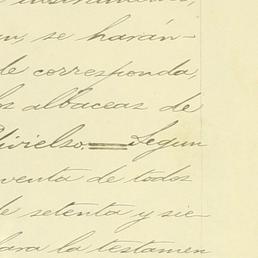 an, se harán-
de corresponda,
os albaceas de
Vivielso.= Segun
venta de todos
de setenta y sie-
para la testamen